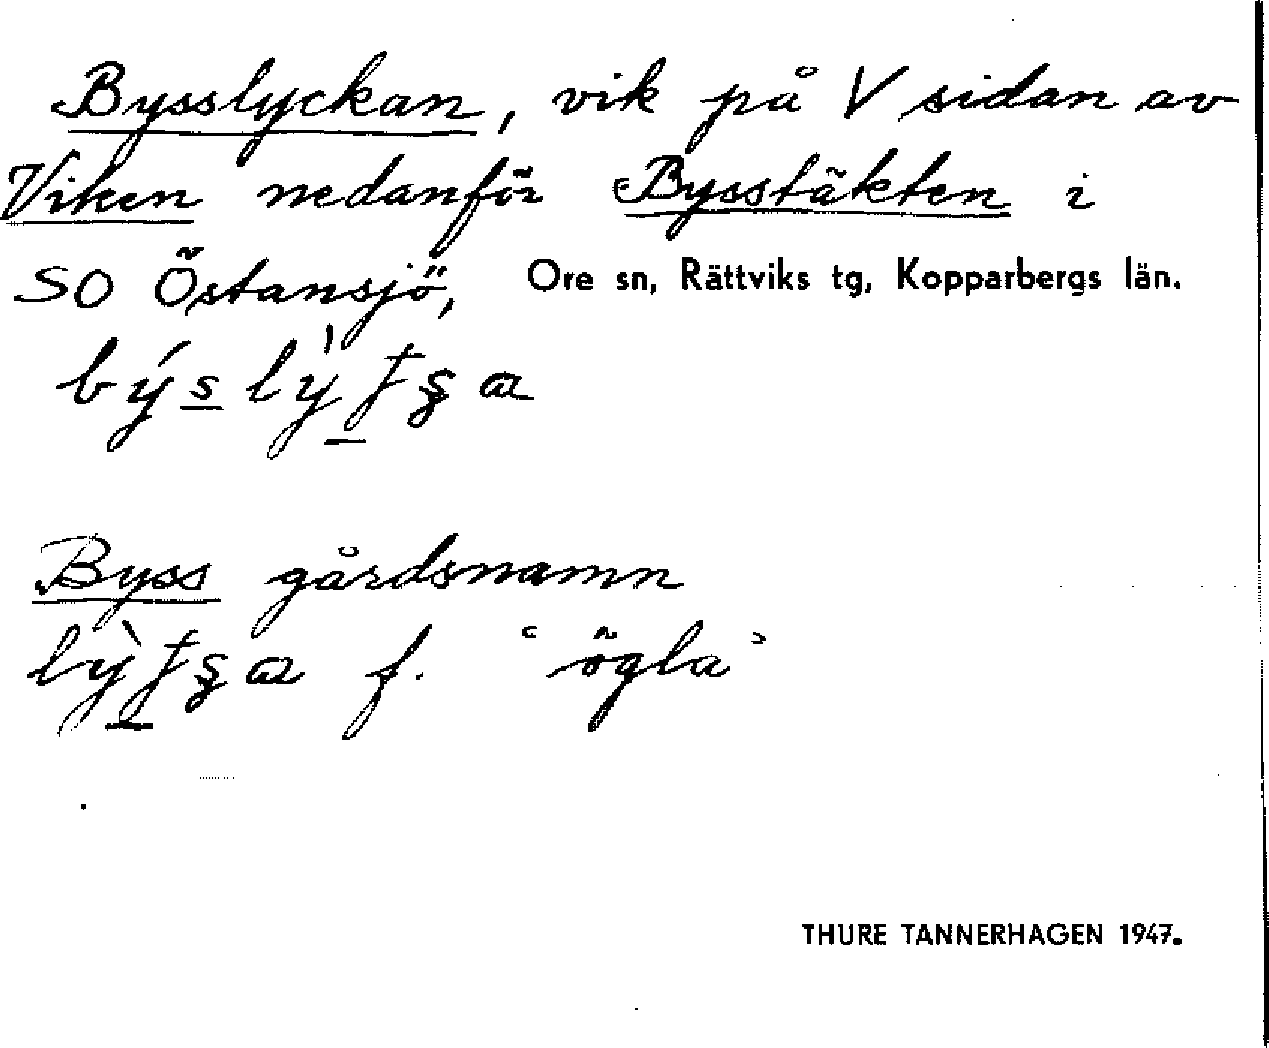 Bysslyckan, vik på V sidan av
Viken nedanför Bysstäkten i
SO Östansjö, Ore sn, Rättviks tg, Kopparbergs län.
Byss gårdsnamn
f. ‘ögla’
THURE TANNERHAGEN 1947.